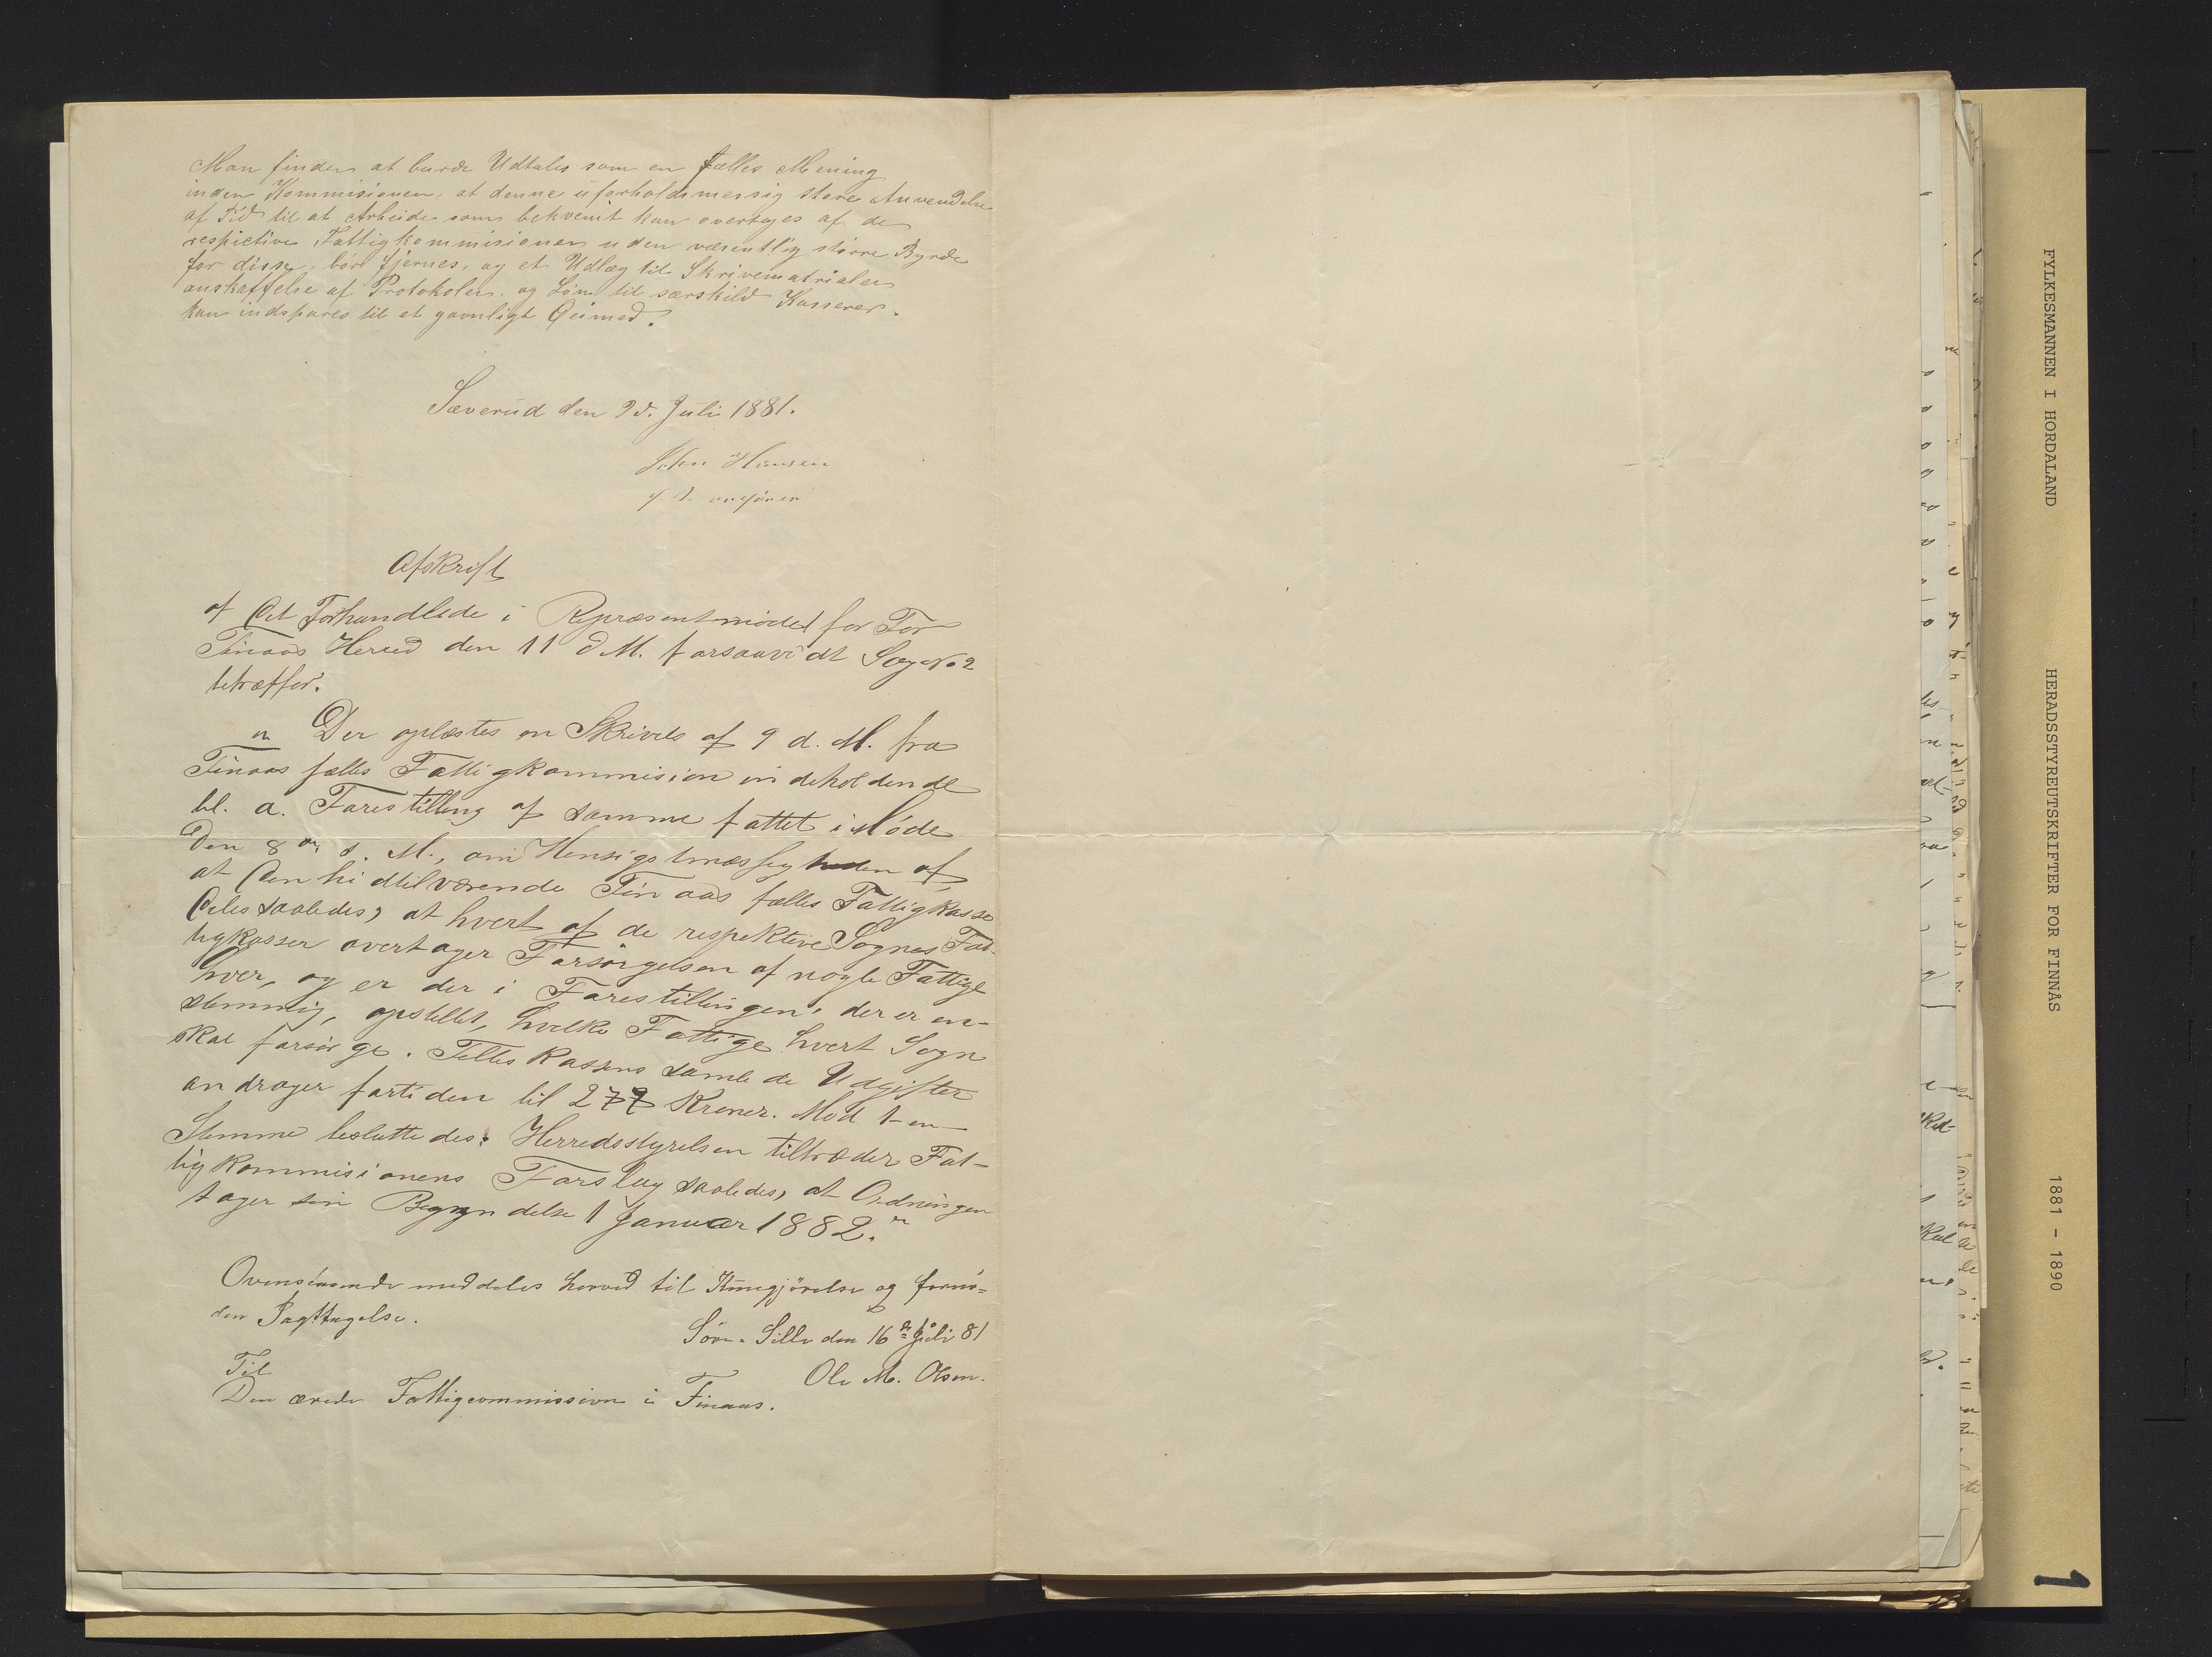 Man finder at burde Udtales som en fælles Mening
inden Kommisionen, at denne uforholdsmessig store Anvendelse
af Tid til at Arbeide som bekvemt kan overtages af de
respictive Fattigkommisioner uden væsentlig større Byrde
for disse, bör fjernes, og et Udlæg til Skrivematrialer
anskaffelse af Protokoler og Løn til særskild Kasserer.
kan indspares til et gavnligt Øeimed.
Sæverud den 9d. Juli 1881.
John Hansen
f. t. ordförer
Afskrift
af det Forhandlede i Repræsentmödet for For
Finaas Hered den 11 d M. forsaavidt Sag No 2
betræffer.
" Der oplæstes en Skrivels af 9 d. M. fra
Finaas fælles Fattigkommision indeholdende
bl. a. Forestilling af samme fattet i Möde
den 8de d. M., om Hensigstmæssigheden af
at den hidtilværende Finaas fælles Fattigkasse
deles saaledes, at hvert af de respektive Sognes Fat-
tigkasser overtager Forsörgelsen af nogle Fattige
hver, og er der i Forestillingen, der er en-
stemmig, opstillet, hvilke Fattige hvert Sogn
skal forsörge. Felles Kassens samlede Udgifter
andrager fortiden til 277 Kroner. Mod 1 en
Stemme besluttedes: Herredsstyrelsen tiltræder Fat-
tigkommisionens Forslag saaledes, at Ordningen
tager sin Begyndelse 1 Januar 1882."
Ovenstaaende meddeles herved til Kundgjörelse og fornö-
den Iagttagelse.
Söre-Lille den 16de Juli 81
Ole M. Olsen.
Til
Den ærede Fattigcommission i Finaas.
FYLKESMANNEN I HORDALAND
HERADSSTYREUTSKRIFTER FOR FINNÅS
1881 - 1890
1